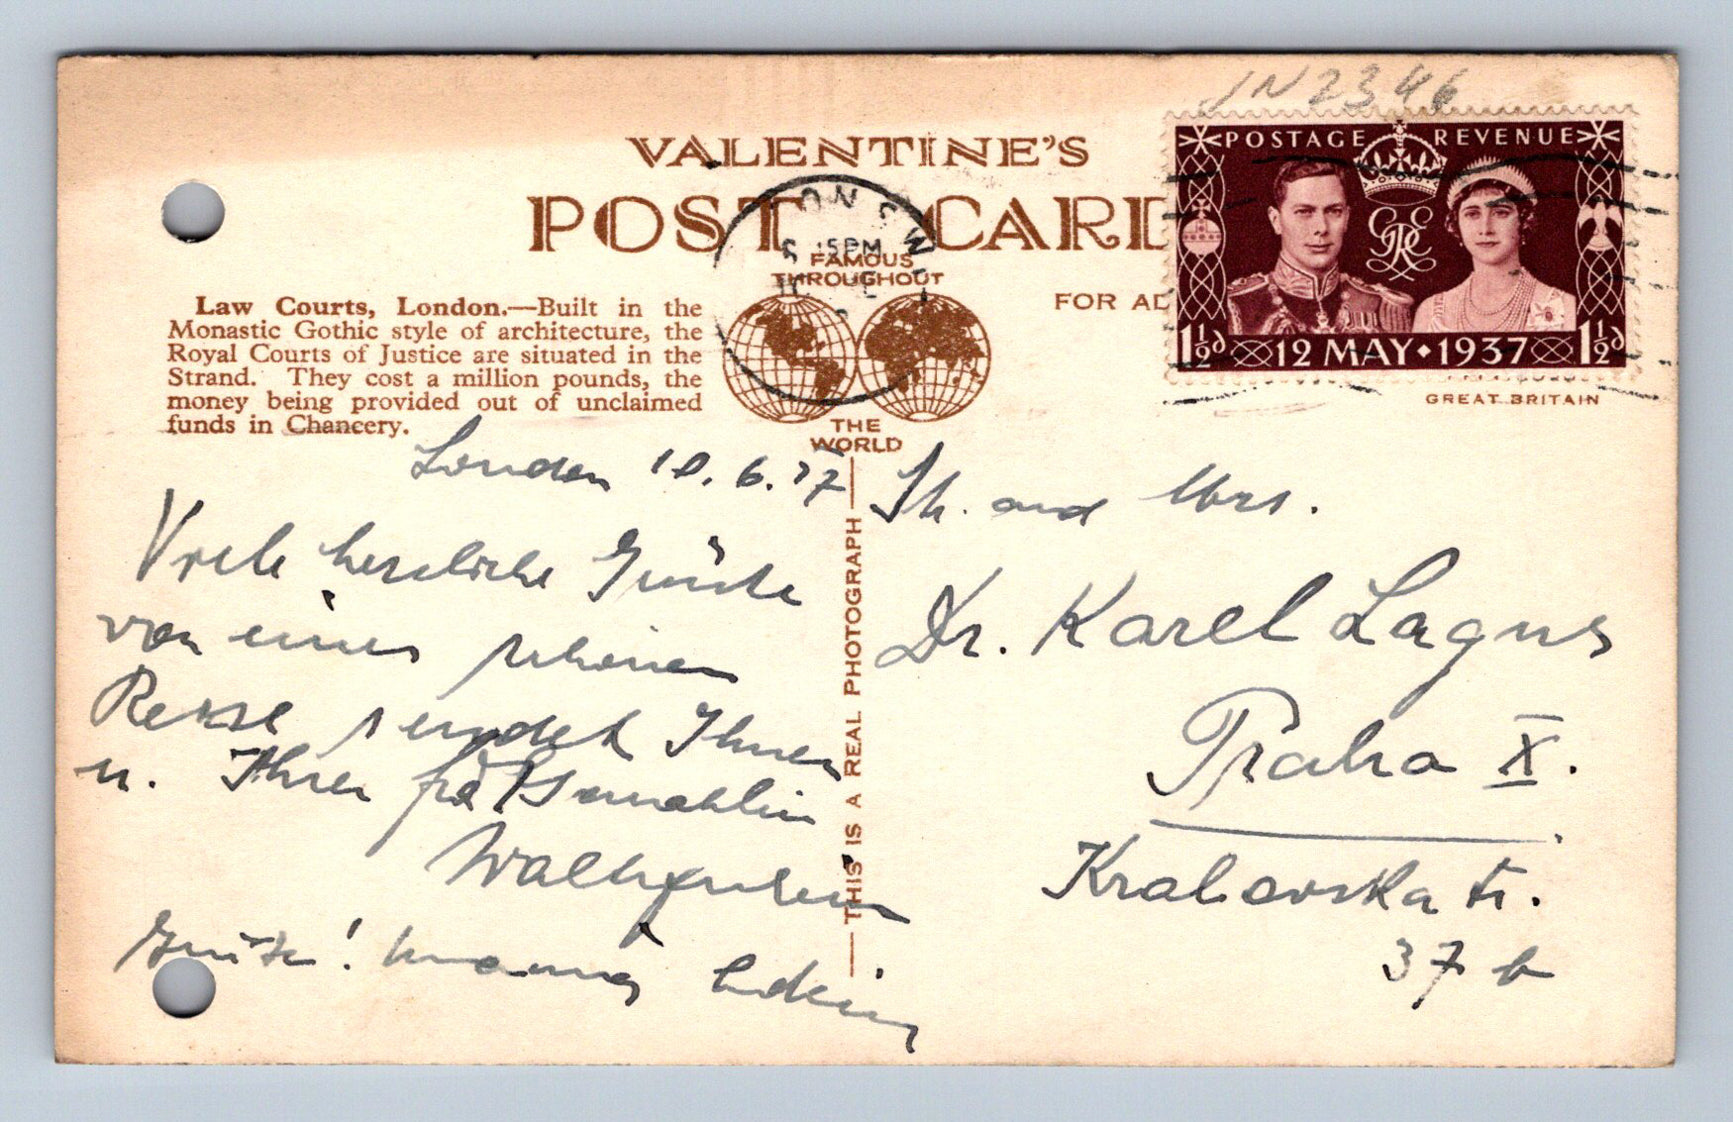 IN2346
VALENTINE'S
POST CARD
POSTAGE REVENUE
1½d 12 MAY • 1937 1½d
GREAT BRITAIN
15PM
FAMOUS
THROUGHOUT
THE
WORLD
FOR AD
Law Courts, London.—Built in the
Monastic Gothic style of architecture, the
Royal Courts of Justice are situated in the
Strand. They cost a million pounds, the
money being provided out of unclaimed
funds in Chancery.
London 10.6.37
Viele herzliche Grüße
von einer schönen
Reise sendet Ihnen
u. Ihrer Gemahlin
Grüße!
THIS IS A REAL PHOTOGRAPH
and Mrs.
Dr. Karel Lagus
Praha X.
Kralovska tr.
37 b